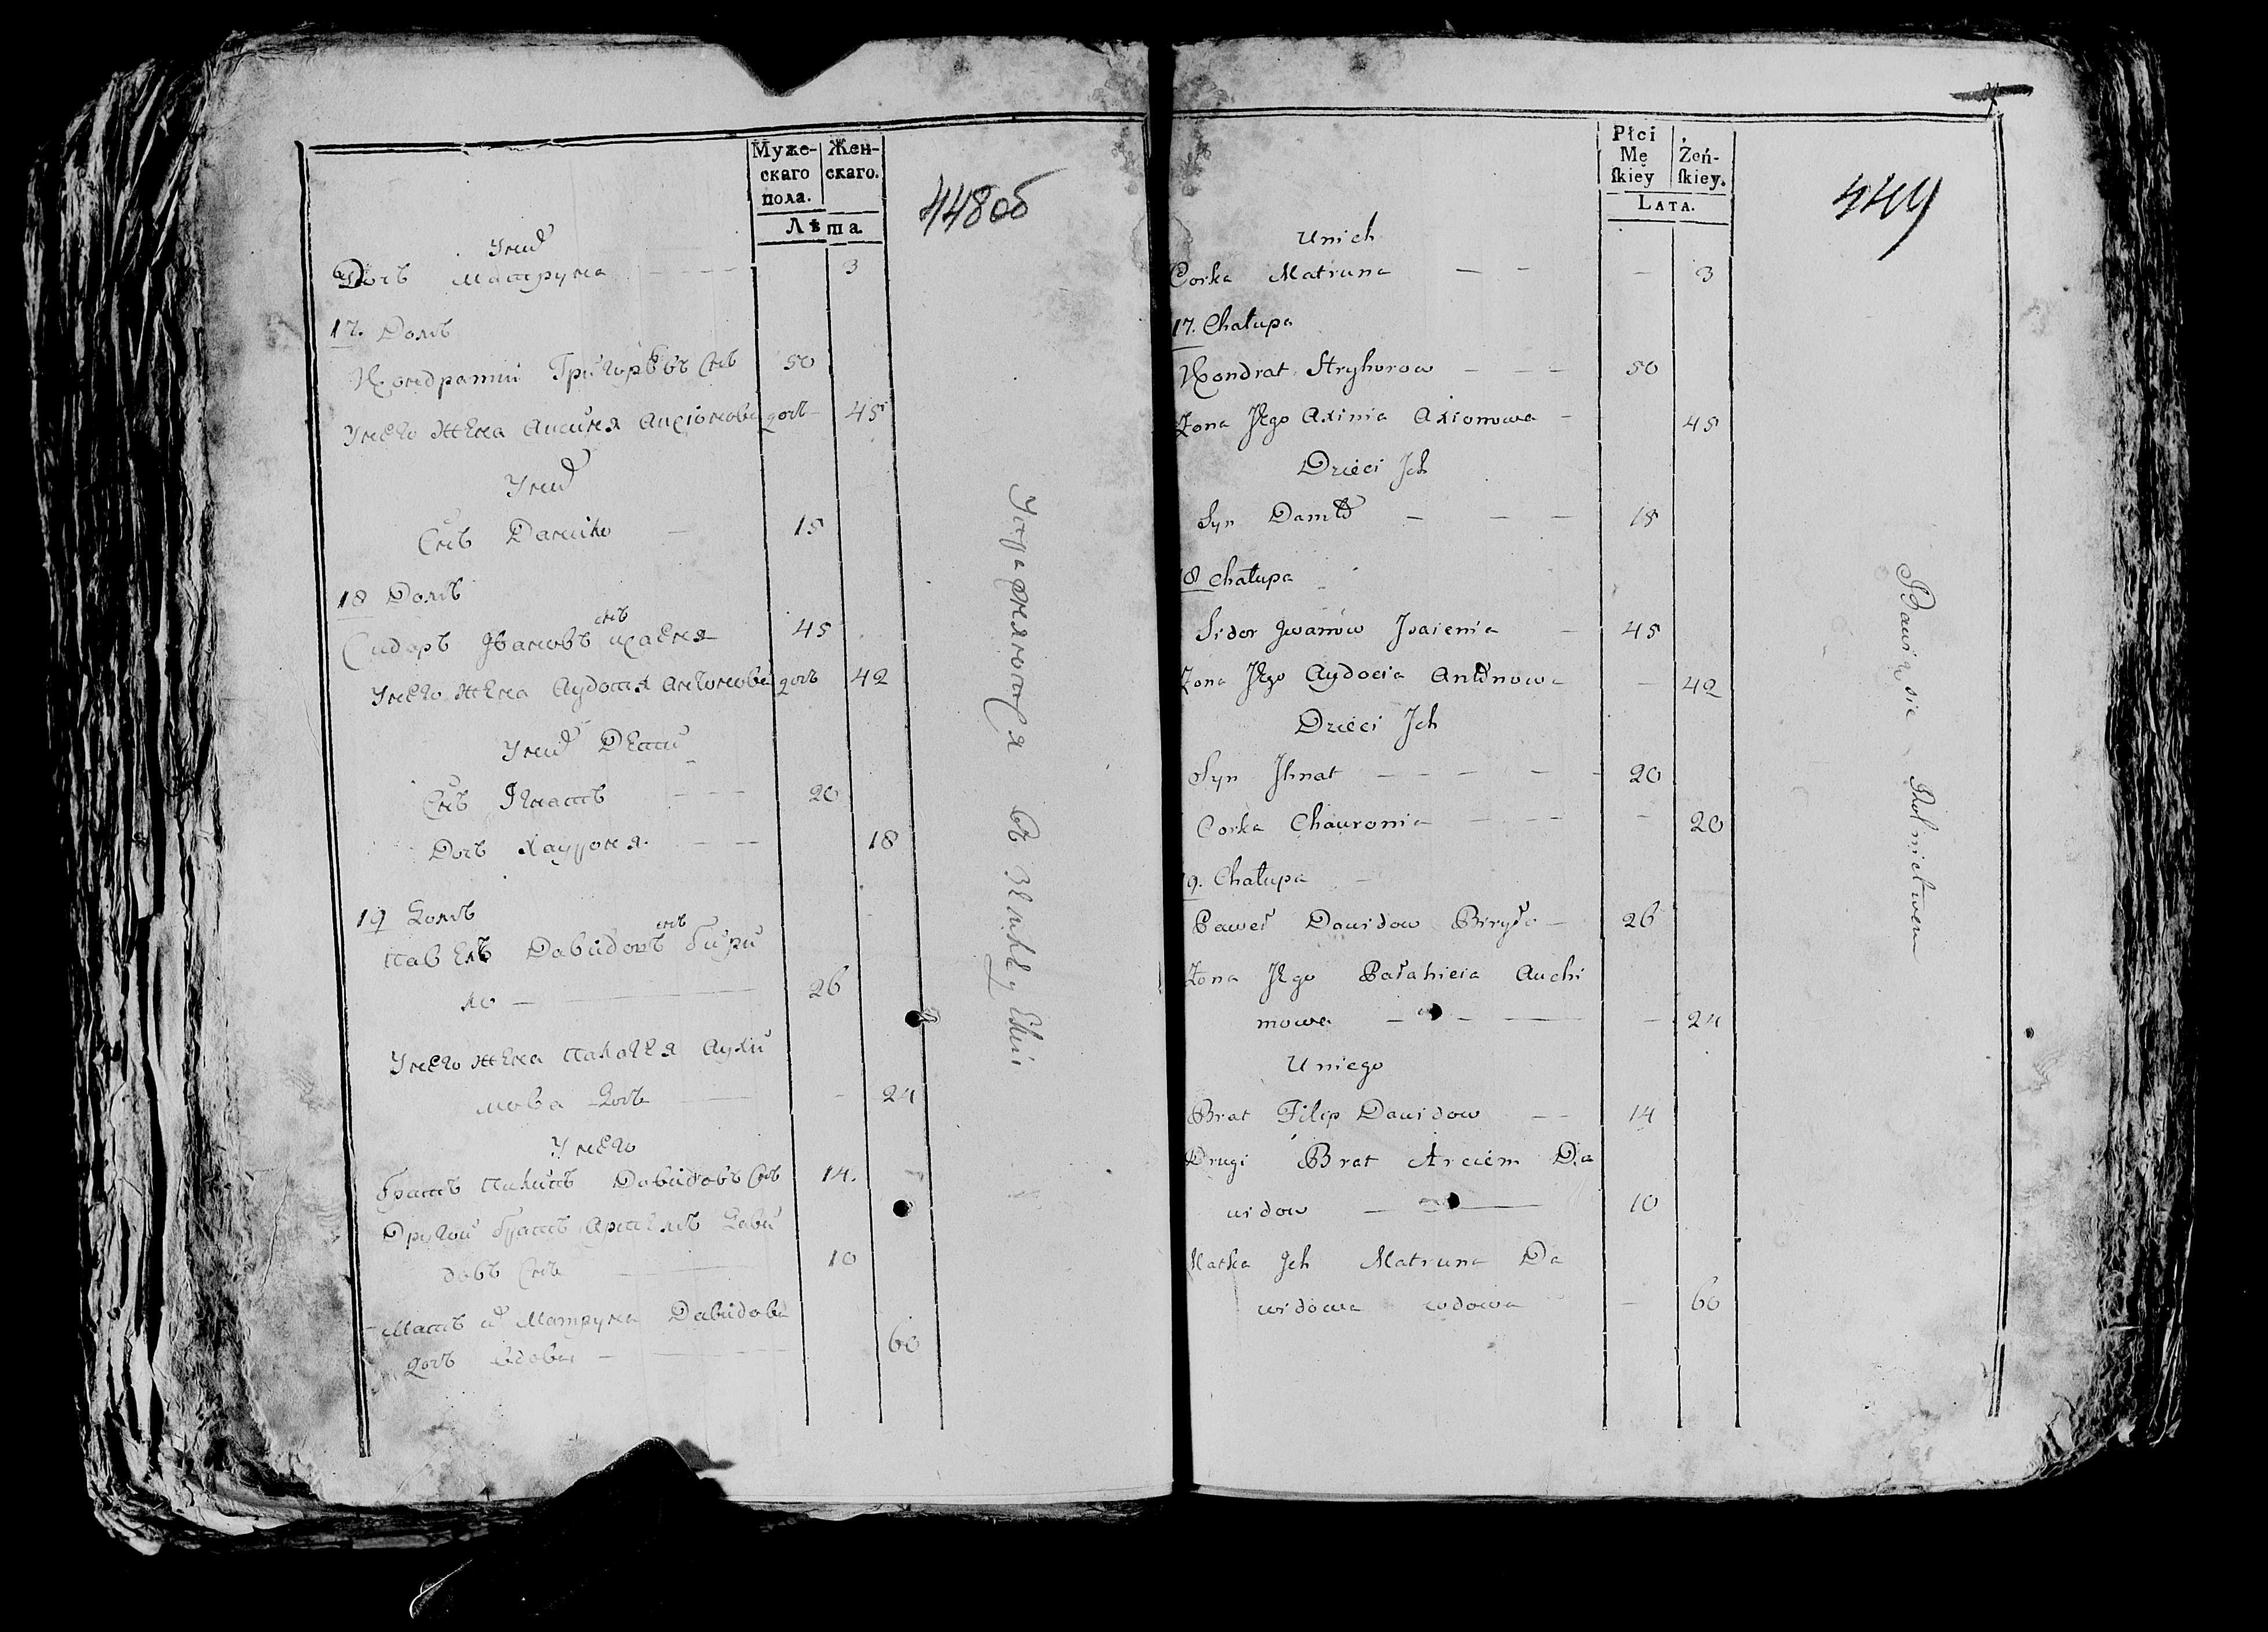 Муже-
скаго
пола.
Жен-
скаго.
Лѣта
448об
У них
Дочь Матруна 3
17. Домъ
Кондратий Григорьевъ Снъ 50
У него жена Аксиня Аксіонова дочь 45
У них
Снъ Данило 15
18 Домъ
снъ
Сидоръ Івановъ исаеня 45
У него жена Аудотя Антонова дочь 42
У них Дети
Снъ Игнатъ 20
Дочь Хауроня 18
19 Домъ
снъ
Павелъ Давидовъ Бири
ло 26
У него жена Палагея Аухи
мова дочь 24
У него
братъ Пилипъ Давидовъ Снъ 14.
Другой братъ Артемъ Дави
довъ Снъ 10
Мать их Матруна Давидова
дочь вдова 60
Упражняются в
Płci
Mę
ſkiey
Żeń-
ſkiey.
LATA.
449
Unich
Corka Matruna 3
17. Chałupa
Kondrat Hryhorow 50
Żona Jego Axinia Axionowa 45
Dzieci Jch
Syn Daniło 15
18 Chałupa
Sidor Jwanow Jsaienia 45
Żona Jego Aydocia Antonowa 42
Dzieci Jch
Syn Jhnat 20
Corka Chauronia 20
19. Chałupa
Paweł Dawidow Biryło 26
Żona Jego Pałahieia Auchi
mowa 24
Uniego
Brat Filip Dawidow 14
Drugi Brat Arciem Da
widow 10
Matka Jch Matruna Da
widowa wdowa 60
Bawią sie Rolnictwem